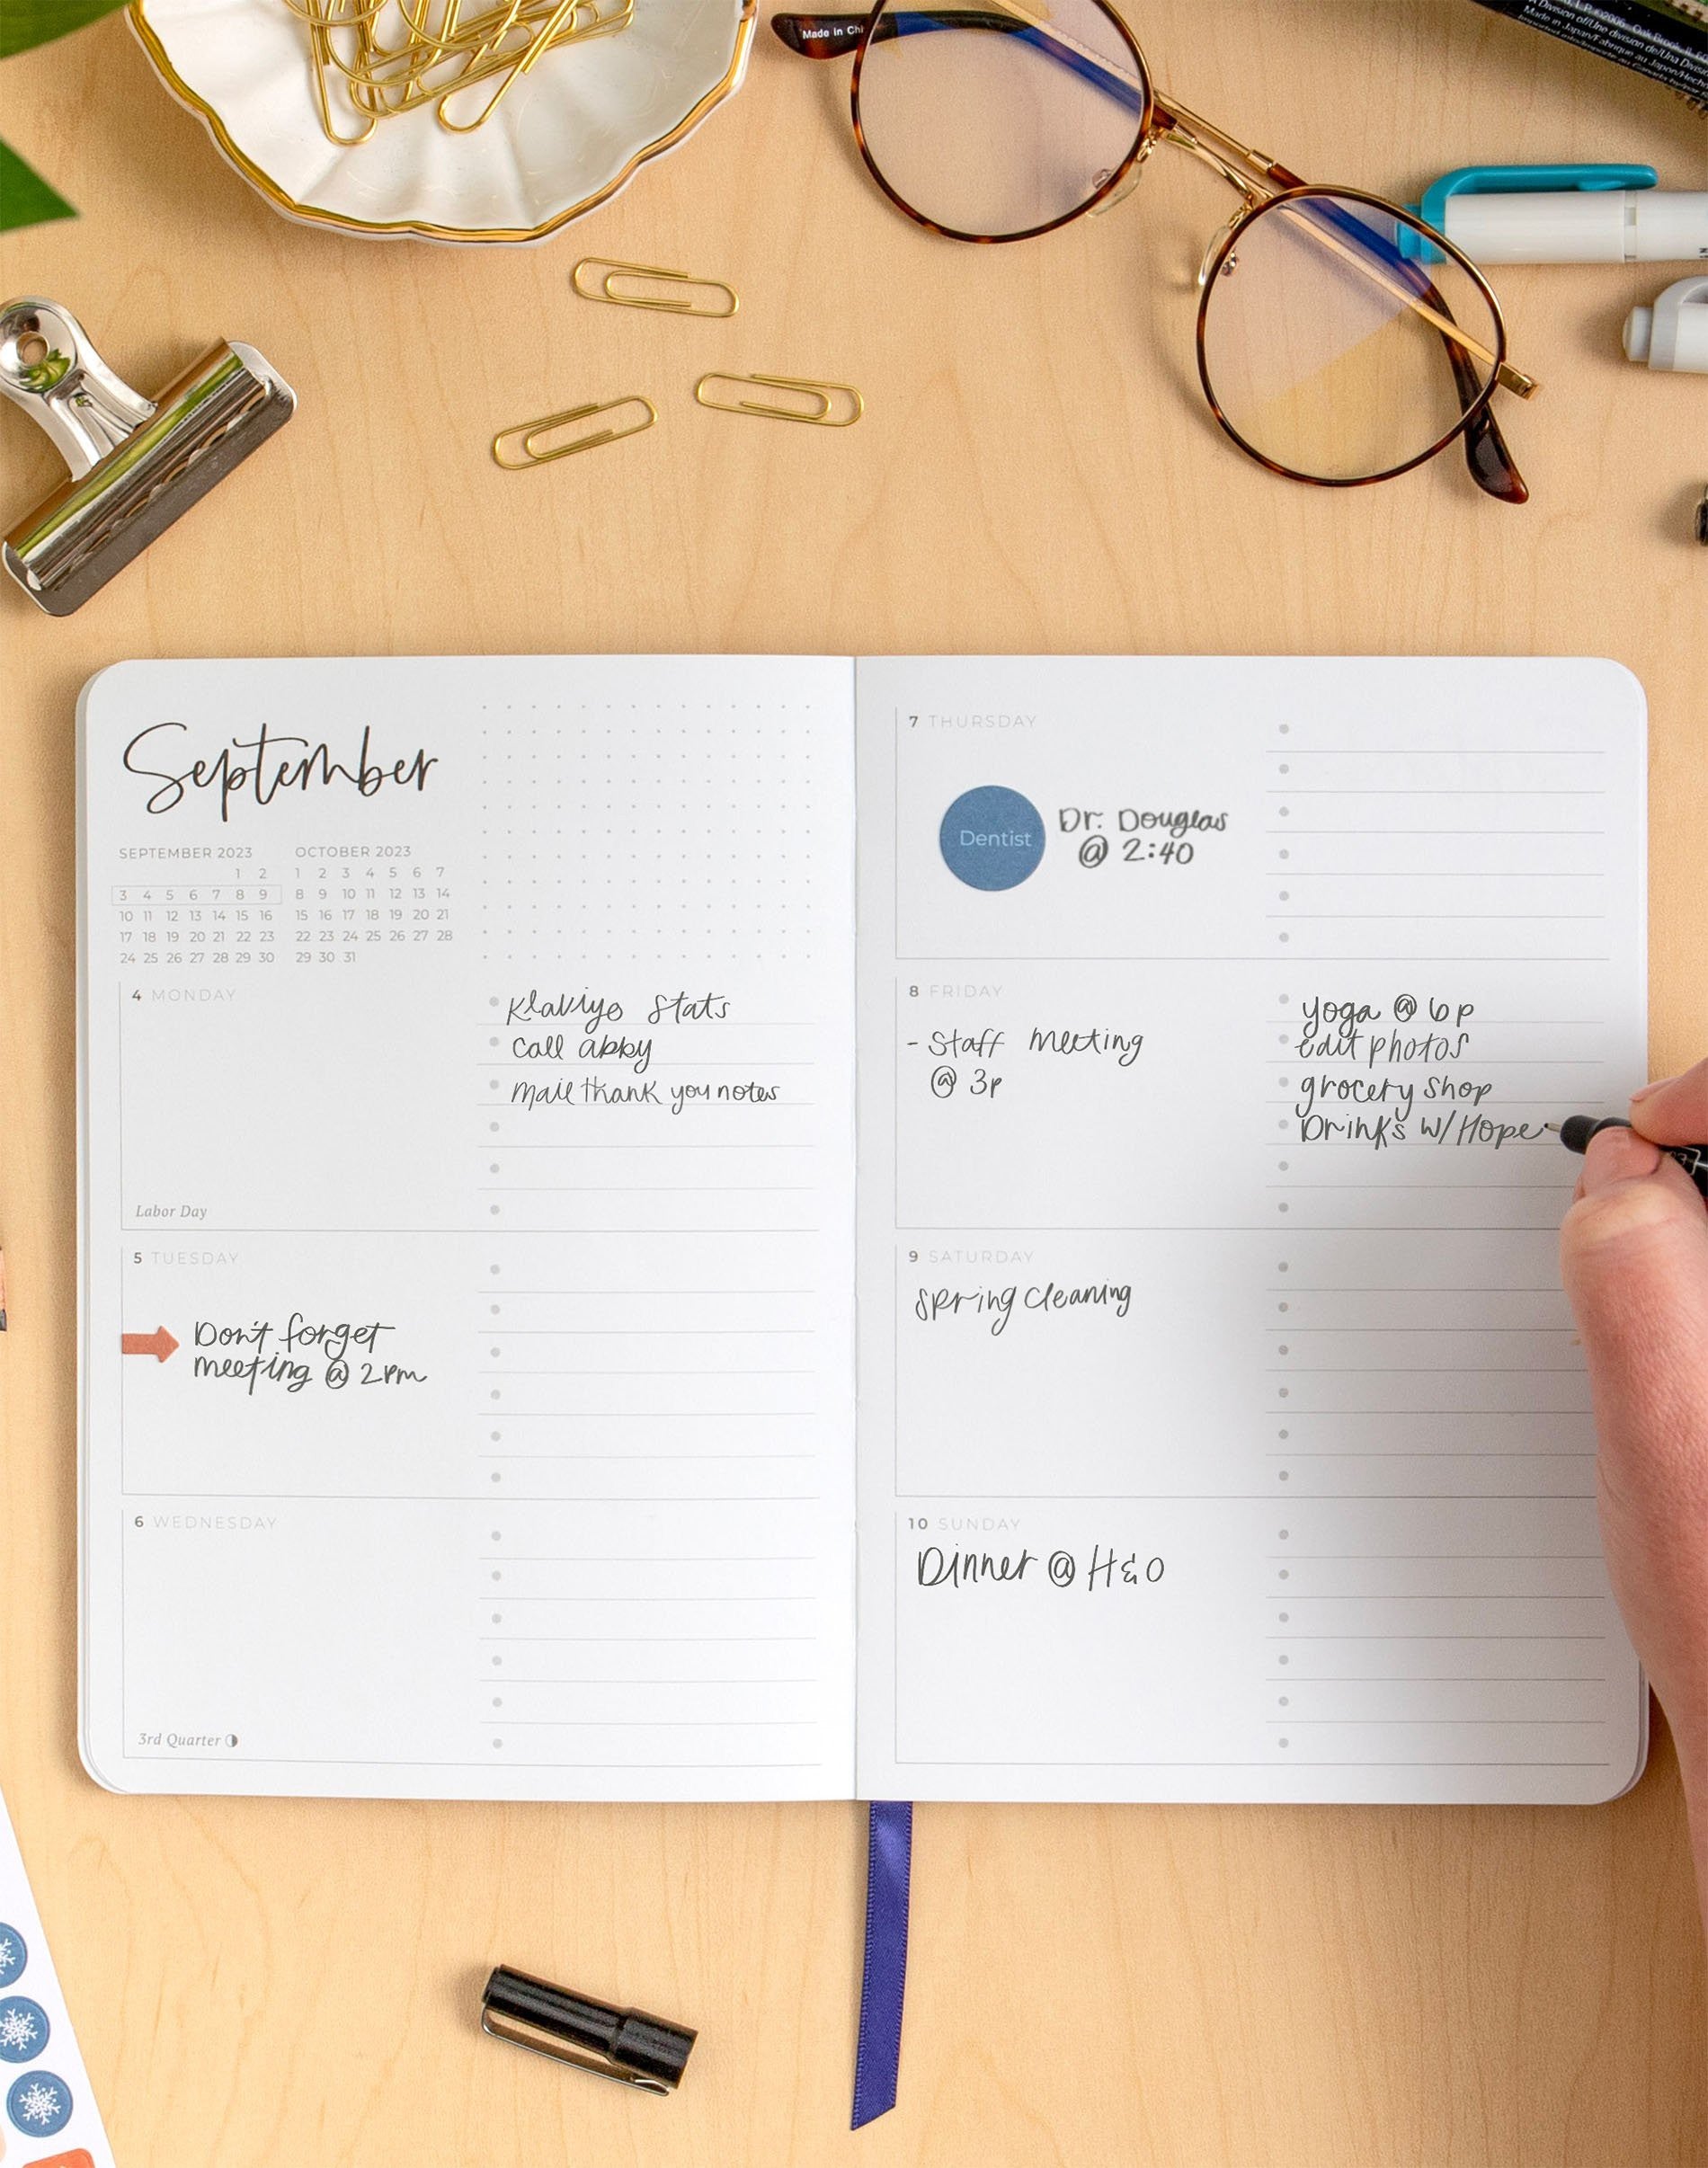 Made in Chi
September
SEPTEMBER 2023
1 2
3 4 5 6 7 8 9
10 11 12 13 14 15 16
17 18 19 20 21 22 23
24 25 26 27 28 29 30
OCTOBER 2023
1 2 3 4 5 6 7
8 9 10 11 12 13 14
15 16 17 18 19 20 21
22 23 24 25 26 27 28
29 30 31
4 MONDAY
Klaviyo Stats
Call abby
Mail thank you notes
Labor Day
5 TUESDAY
Don't forget
meeting @ 2pm
6 WEDNESDAY
3rd Quarter
7 THURSDAY
Dentist
Dr. Douglas
@ 2:40
8 FRIDAY
- Staff Meeting
@ 3p
yoga @ 6p
edit photos
grocery shop
Drinks w/ Hope
9 SATURDAY
Spring cleaning
10 SUNDAY
Dinner @ H&O